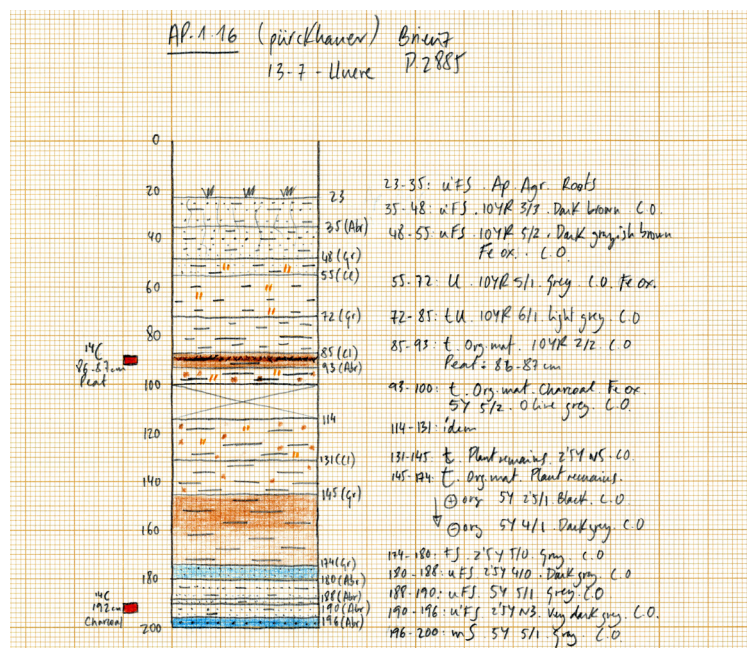 AP.1.16 (pürckhauer) Brienz
13-7-Unere P.2885
0
20
40
60
80
100
120
140
160
180
200
23
35 (Abr)
48 (Gr)
55 (Cl)
72 (Gr)
85 (Cl)
93 (Abr)
114
131 (Cl)
145 (Gr)
174 (Gr)
180 (Abr)
188 (Abr)
190 (Abr)
196 (Abr)
14C
86-87cm
Peat
14C
192cm
Charcoal
23-35: u'FS . Ap. Agr. Roots
35-48: u'FS . 10YR 3/3 . Dark brown . C.O.
48-55: uFS . 10YR 5/2 . Dark grayish brown
Fe ox. . C.O.
55-72: U . 10YR 5/1 . Grey . C.O. Fe ox.
72-85: tU . 10YR 6/1 . light grey . C.O
85-93: t . Org. mat. . 10YR 2/2 . C.O
Peat: 86-87cm
93-100: t . Org. mat. Charcoal. Fe ox.
5Y 5/2 . Olive grey. C.O.
114-131: idem
131-145 t. Plant remains. 2'5Y N5. C.O.
145-174: t. Org. mat. Plant remains.
⊕ org 5Y 2'5/1. Black. C.O
⊖ org 5Y 4/1. Dark grey. C.O
174-180: fS . 2'5Y 5/0. Gray. C.O
180-188: uFS 2'5Y 4/0 . Dark gray. C.O
188-190: uFS . 5Y 5/1 . Grey. C.O
190-196: u'FS 2'5Y N3. Very dark grey. C.O.
196-200: mS . 5Y 5/1 . Gray . C.O.